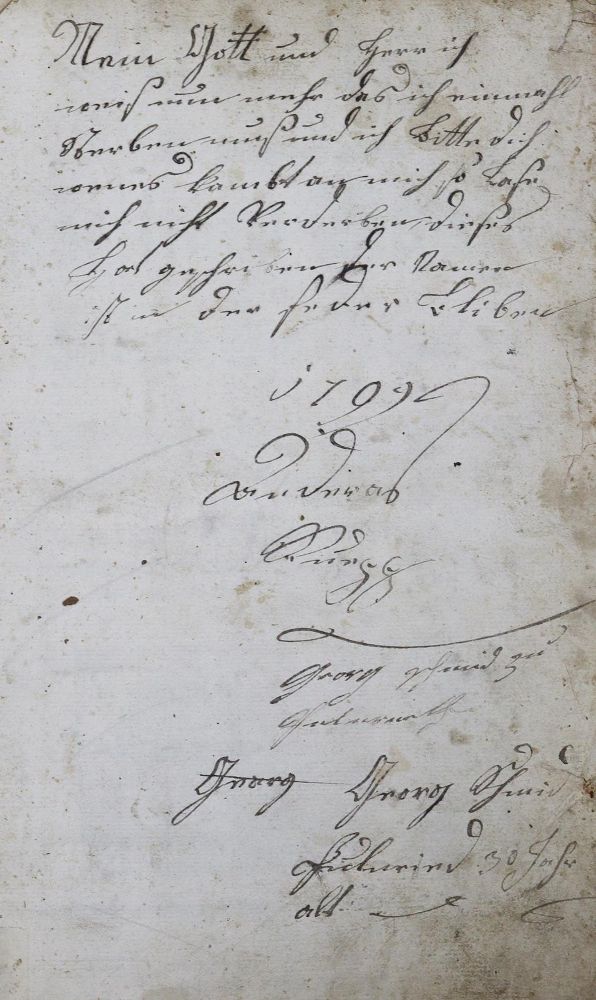 Mein Gott und Herr ich
weiß nun mehr das ich einmahl
Sterben muß und ich Bitte dich
wenes kambt an mich so Lase
mich nicht Verderben, dieses
Hat geschriben der Namen
ist in der feder Bliben
1799
Anderas
Ruepp
Georg schmid zu
Georg Georg Schmid
30 Jahr
alt